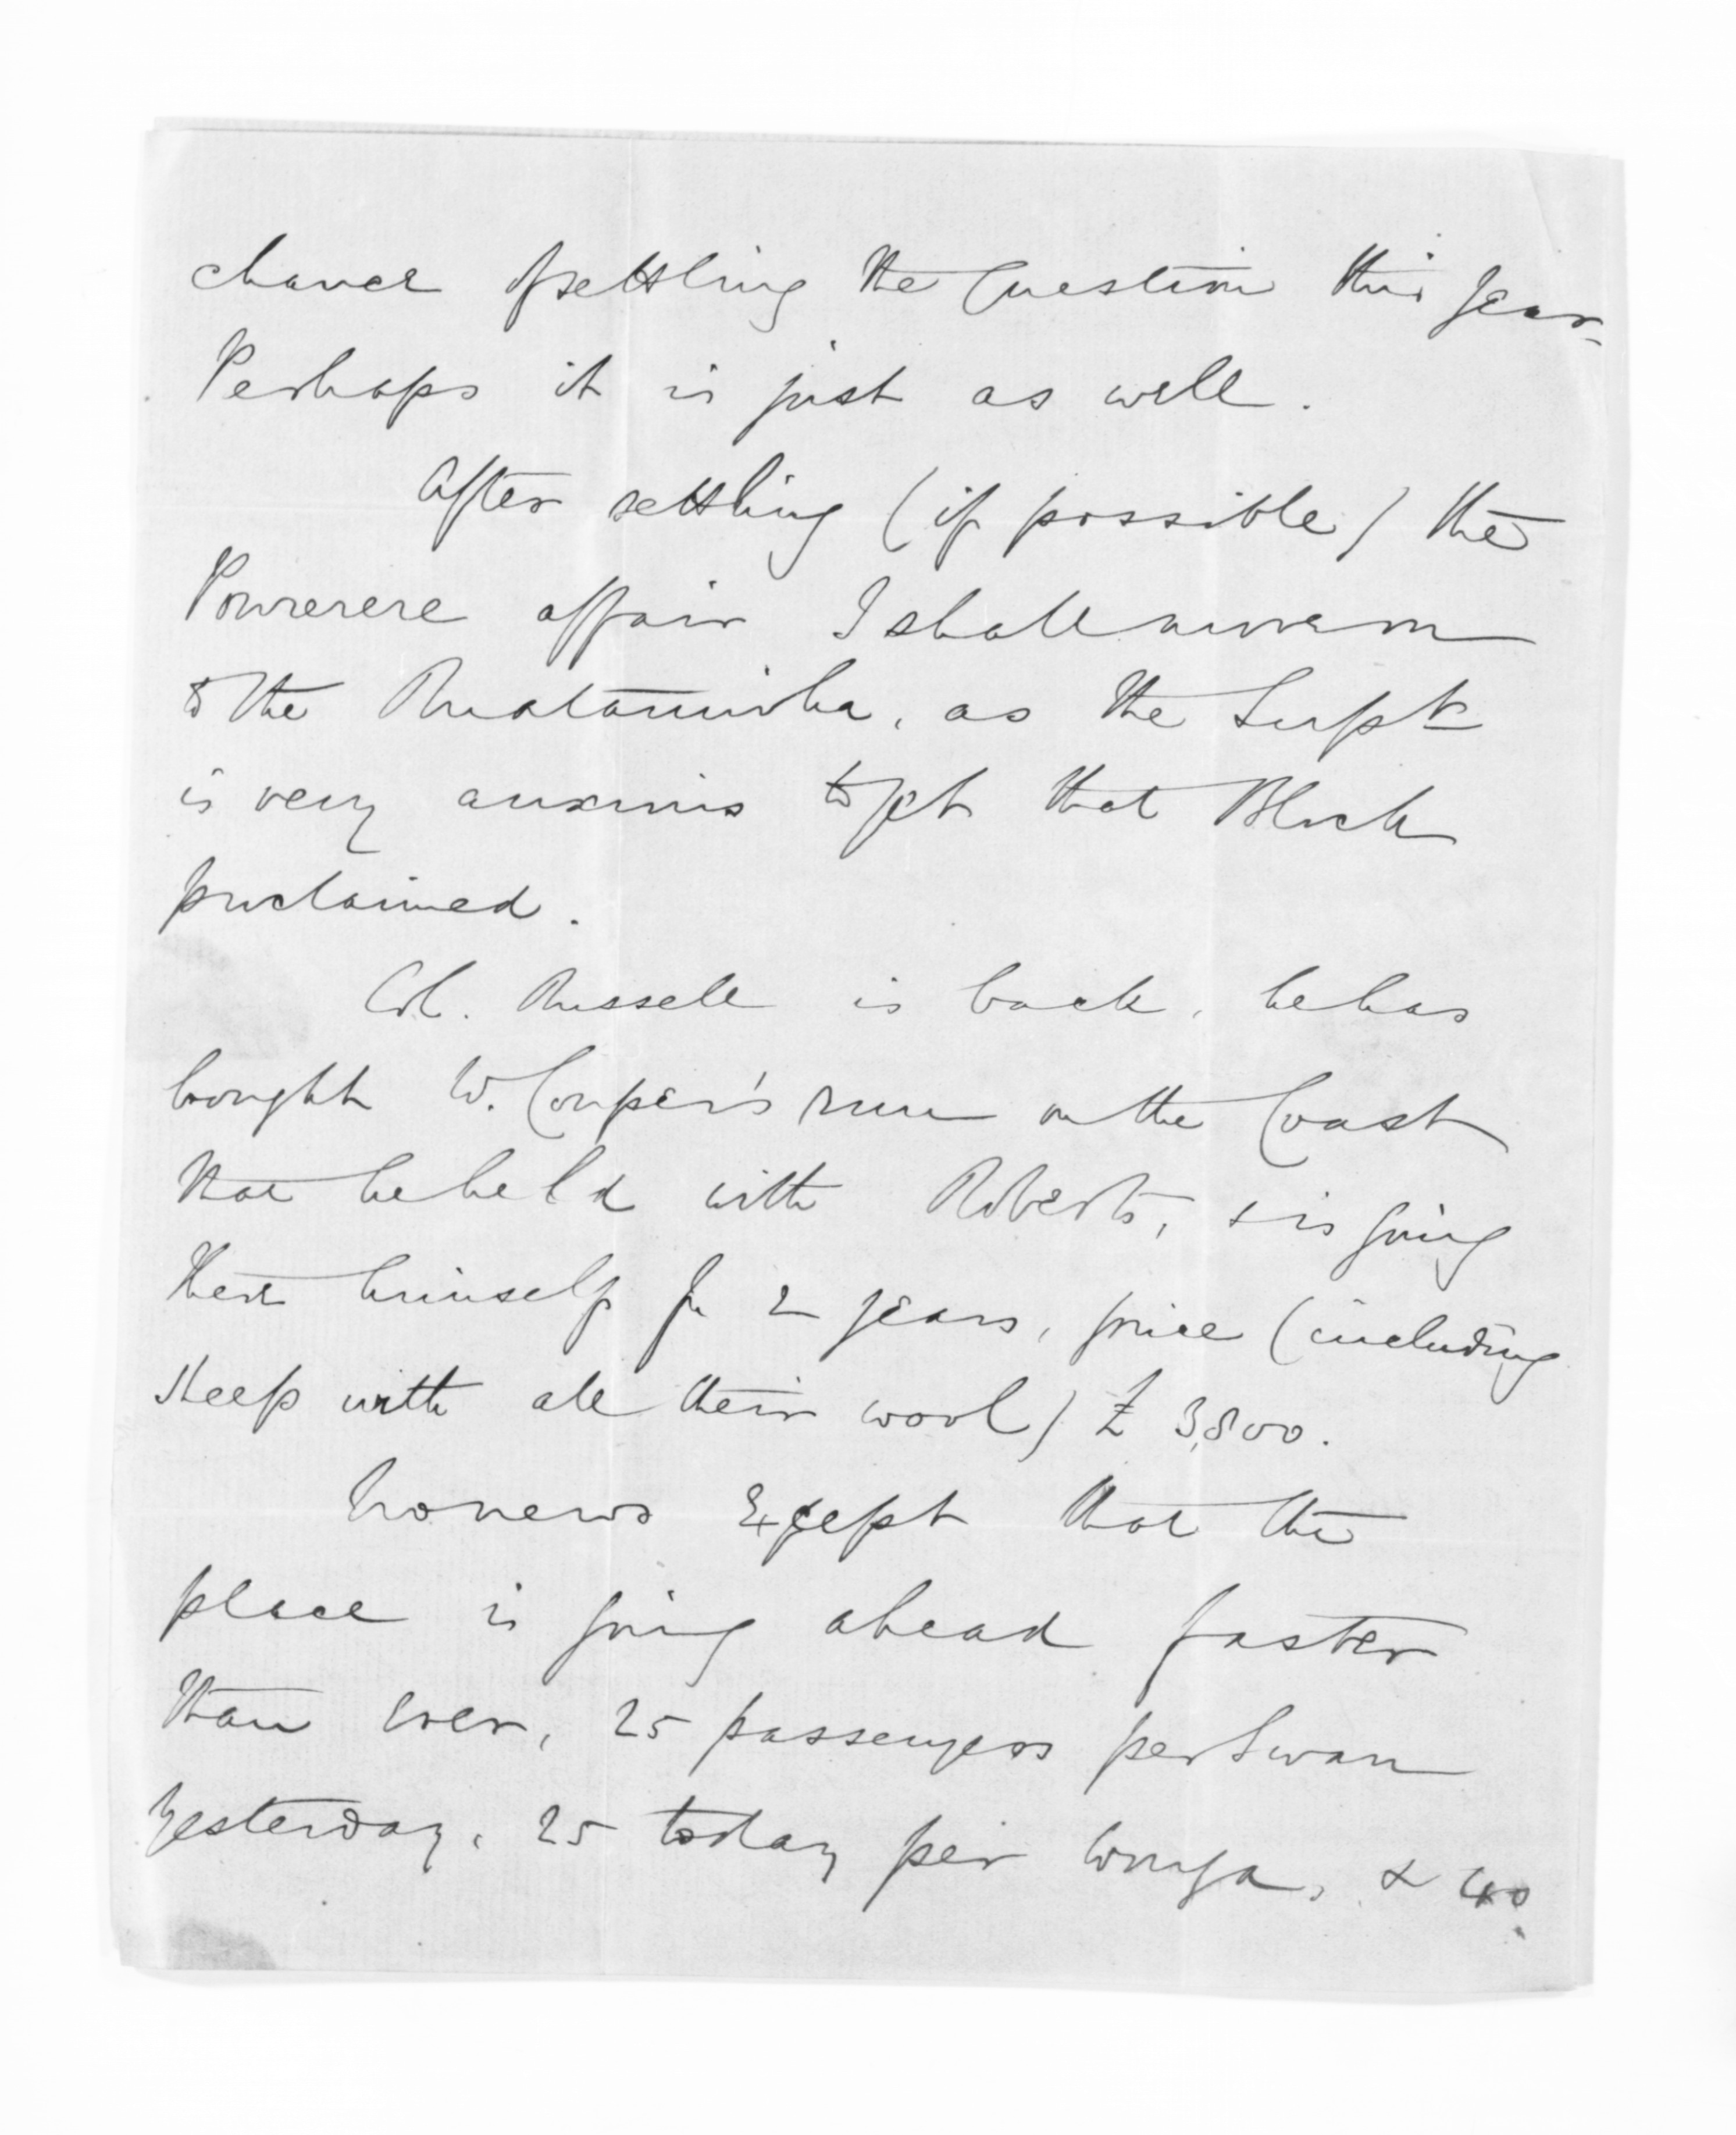 chance of settling the Question this year
Perhaps it is just as well.
After settling (if possible) the
Powrerere affair I shall run on
to the Ruataniwha, as the Supt
is very anxious to get that Block
proclaimed.
Col. Russell is back, he has
bought W. Couper's run on the Coast
that he held with Roberts, & is going
there himself for 2 years, price (including
sheep with all their wool) £3,800.
No news except that the
place is going ahead faster
than ever, 25 passengers per Swan
yesterday, 25 today per Wonga, & 40